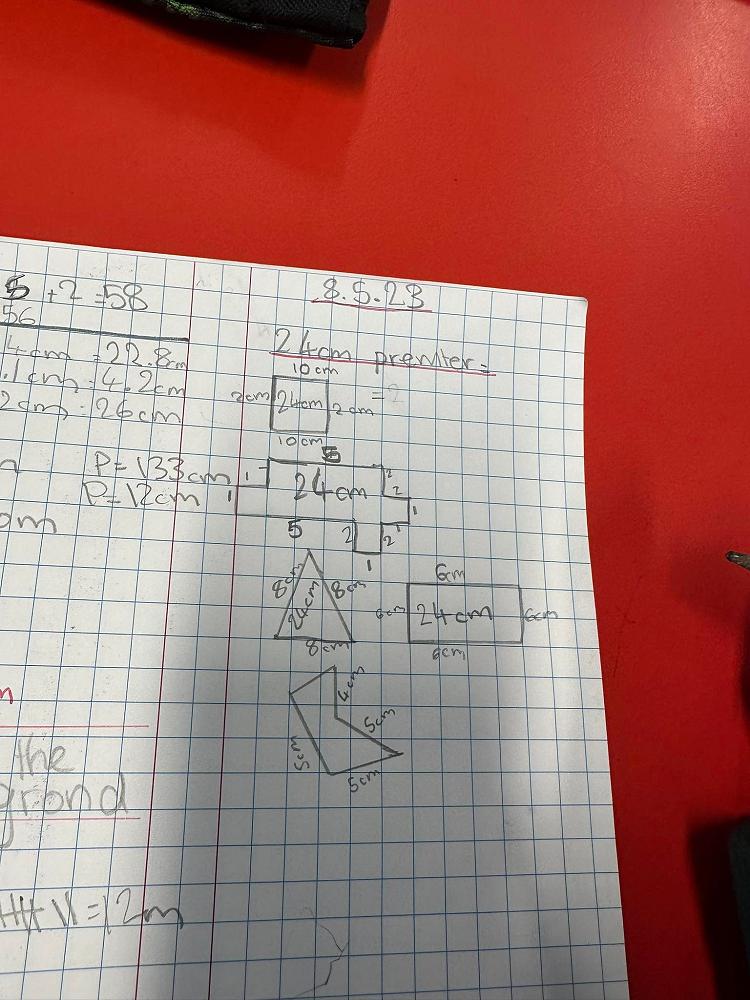 5 +2 =58
56
4cm = 22.8cm
.1cm = 4.2cm
2cm = 26cm
P= 133cm
P= 12cm
the
grond
11 = 12m
8.5.23
24cm premter=
10cm
2cm 24cm 2cm =
10cm
5
1 24cm 2
2
1 1
1
5 2 2
1
8cm 24cm 8cm
8cm
6cm
6cm 24cm 6cm
6cm
4cm
5cm
5cm
5cm